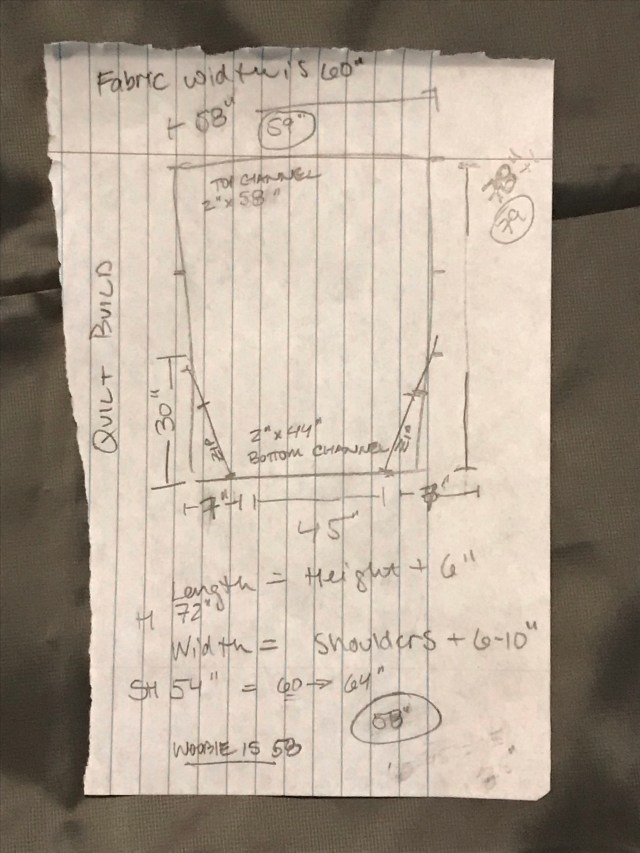 Fabric width is 60"
58"
59"
TOP CHANNEL
2" x 58"
79
QUILT BUILD
30"
ZIP
2" x 44"
BOTTOM CHANNEL
ZIP
7"
45"
Length = Height + 6"
H 72"
Width = Shoulders + 6-10"
SH 54" = 60 → 64"
58"
WOOBIE IS 58